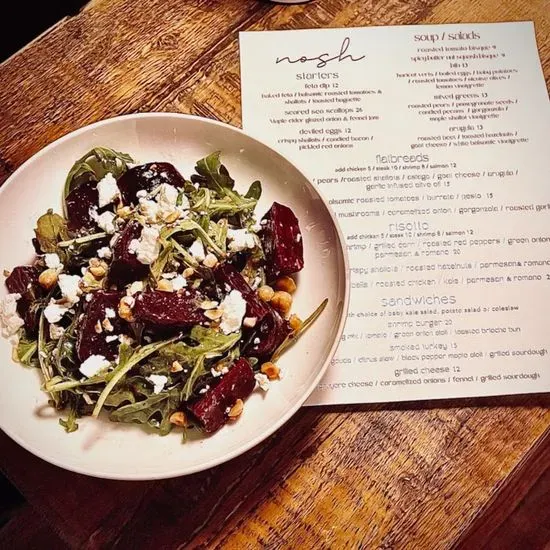 nosh
starters
feta dip 12
baked feta / balsamic roasted tomatoes &
shallots / toasted baguette
seared sea scallops 26
maple cider glazed onion & fennel jam
deviled eggs 12
crispy shallots / candied bacon /
pickled red onions
soup / salads
roasted tomato bisque 9
spicy butter nut squash bisque 9
bib 13
haricot verts / boiled eggs / baby potatoes
/ roasted tomatoes / nicoise olives /
lemon vinaigrette
mixed greens 13
roasted pears / pomegranate seeds /
candied pecans / gorgonzola /
maple shallot vinaigrette
arugula 13
roasted beets / toasted hazelnuts /
goat cheese / white balsamic vinaigrette
flatbreads
add chicken 5 / steak 10 / shrimp 8 / salmon 12
/ pears / roasted shallots / asiago / goat cheese / arugula /
garlic infused olive oil 15
balsamic roasted tomatoes / burrata / pesto 15
mushrooms / caramelized onion / gorgonzola / roasted garlic
risotto
add chicken 5 / steak 10 / shrimp 8 / salmon 12
shrimp / grilled corn / roasted red peppers / green onion
parmesan & romano 20
crispy shallots / roasted hazelnuts / parmesan & romano
/ roasted chicken / kale / parmesan & romano
sandwiches
with choice of chips, potato salad or coleslaw
shrimp burger 20
mix / tomato / green onion aioli / toasted brioche bun
smoked turkey 15
gouda / citrus slaw / black pepper maple aioli / grilled sourdough
grilled cheese 12
gruyere cheese / caramelized onions / fennel / grilled sourdough